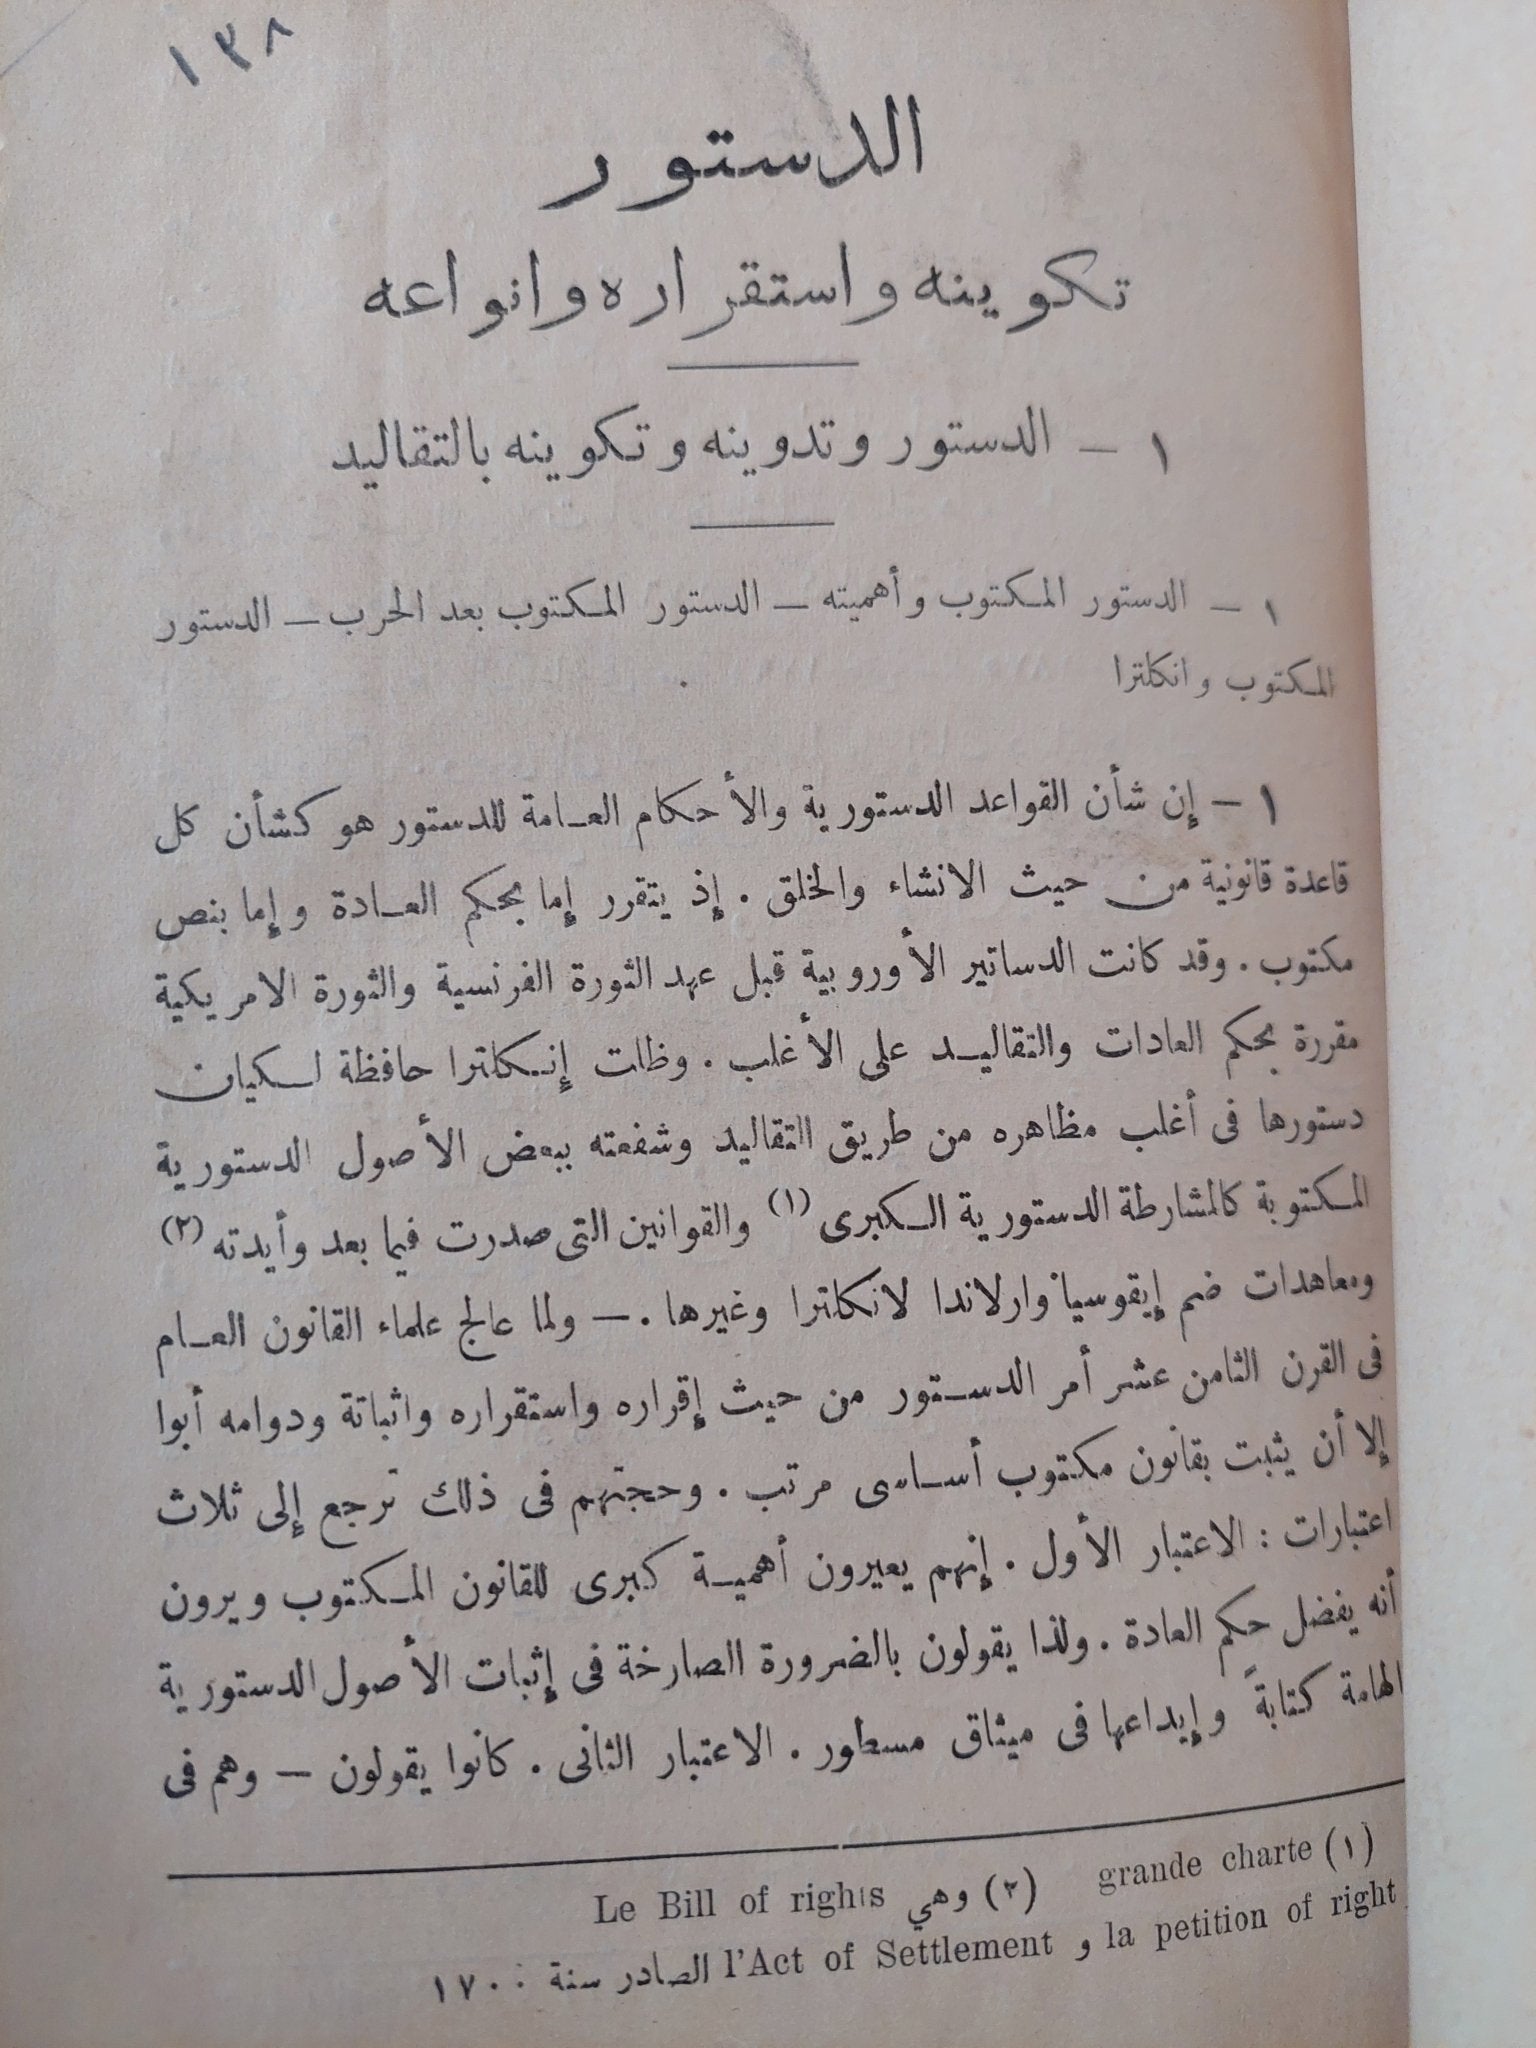 ١٣٨
الدستور
تكوينه واستقراره وانواعه
١ – الدستور وتدوينه وتكوينه بالتقاليد
١ – الدستور المكتوب وأهميته – الدستور المكتوب بعد الحرب – الدستور
المكتوب وانكلترا
١ – إن شأن القواعد الدستورية والأحكام العامة للدستور هو كشأن كل
قاعدة قانونية من حيث الانشاء والخلق . إذ يتقرر إما بحكم العادة وإما بنص
مكتوب . وقد كانت الدساتير الأوروبية قبل عهد الثورة الفرنسية والثورة الامريكية
مقررة بحكم العادات والتقاليد على الأغلب . وظلت إنكلترا حافظة لكيان
دستورها فى أغلب مظاهره من طريق التقاليد وشفعته ببعض الأصول الدستورية
المكتوبة كالمشارطة الدستورية الكبرى (١) والقوانين التى صدرت فيما بعد وأيدته (٢)
ومعاهدات ضم إيقوسيا وارلاندا لانكلترا وغيرها . – ولما عالج علماء القانون العام
فى القرن الثامن عشر أمر الدستور من حيث إقراره واستقراره واثباتة ودوامه أبوا
إلا أن يثبت بقانون مكتوب أساسى مرتب . وحجتهم فى ذلك ترجع إلى ثلاث
اعتبارات : الاعتبار الأول . إنهم يعيرون أهمية كبرى للقانون المكتوب ويرون
أنه يفضل حكم العادة . ولذا يقولون بالضرورة الصارخة فى إثبات الأصول الدستورية
الهامة كتابةً وإيداعها فى ميثاق مسطور . الاعتبار الثانى . كانوا يقولون – وهم فى
(١) grande charte (٢) وهي Le Bill of rights
la petition of right و l'Act of Settlement الصادر سنة : ١٧٠٠